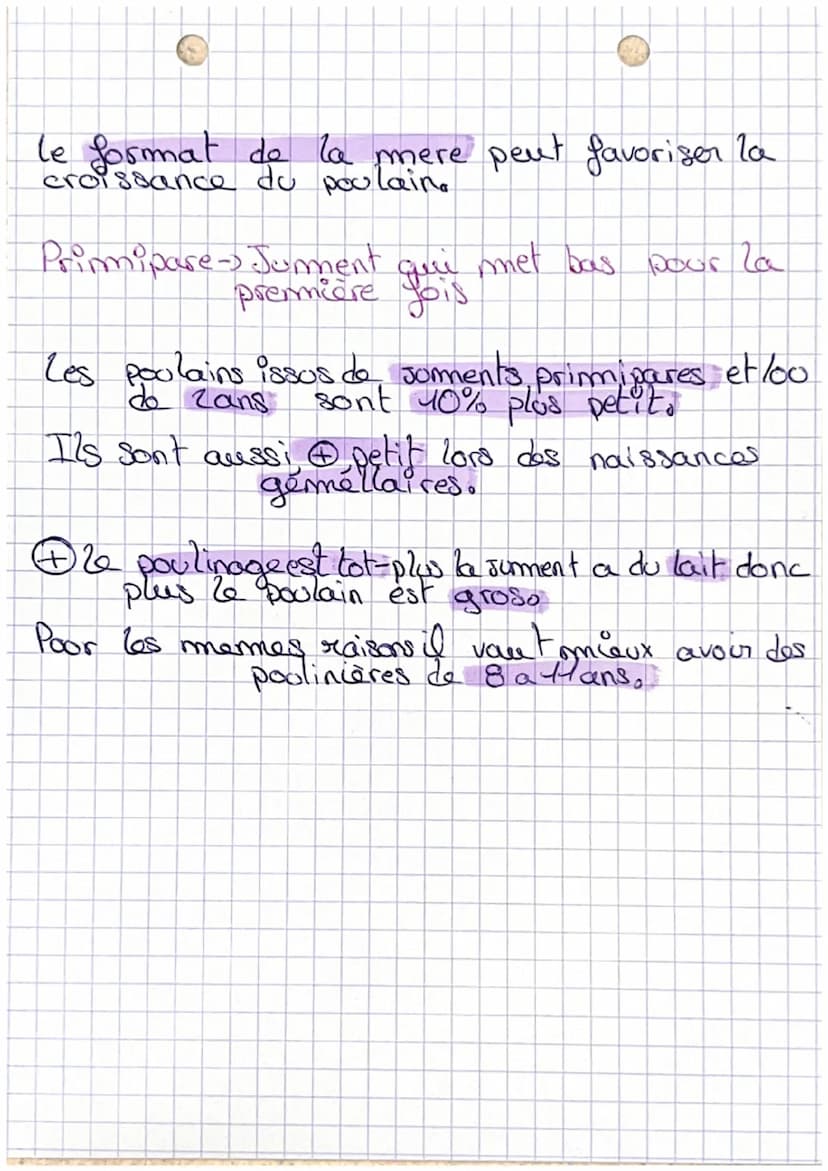 le format de la mere peut favoriser la
croissance du poulain.
Primipare -> Jument qui met bas pour la
première fois
Les poulains issus de juments primipares et/ou
de 2ans sont 10% plus petit.
Ils sont aussi ⊕ petit lors des naissances
gémellaires.
⊕ le poulinage est tot-plus la jument a du lait donc
plus le poulain est gros.
Pour les memes raisons il vaut mieux avoir des
poulinières de 8 a 11ans.